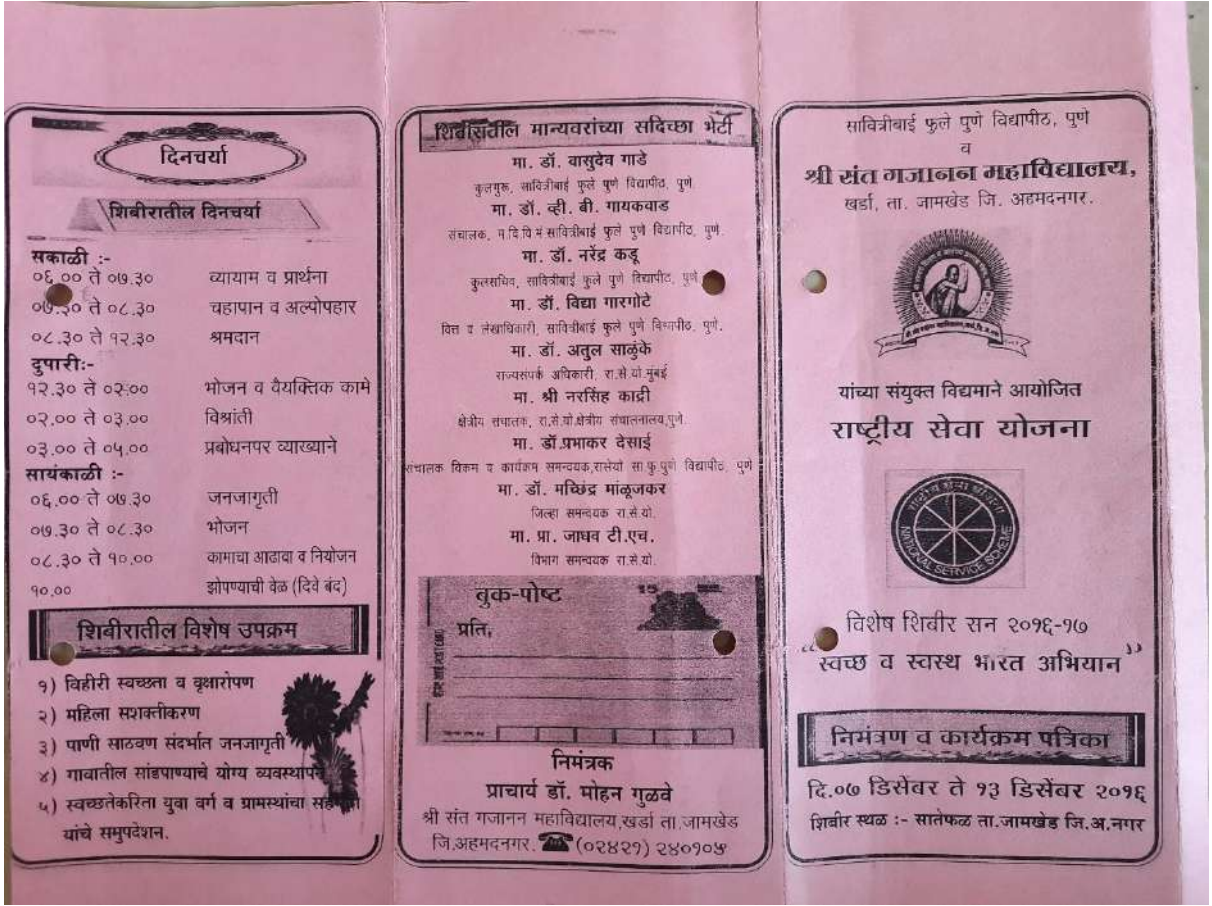 दिनचर्या
शिबीरातील दिनचर्या
सकाळी :-
०६.०० ते ०७.३० व्यायाम व प्रार्थना
०७.३० ते ०८.३० चहापान व अल्पोपहार
०८.३० ते १२.३० श्रमदान
दुपारी:-
१२.३० ते ०२.०० भोजन व वैयक्तिक कामे
०२.०० ते ०३.०० विश्रांती
०३.०० ते ०५.०० प्रबोधनपर व्याख्याने
सायंकाळी :-
०६.०० ते ०७.३० जनजागृती
०७.३० ते ०८.३० भोजन
०८.३० ते १०.०० कामाचा आढावा व नियोजन
१०.०० झोपण्याची वेळ (दिवे बंद)
शिबीरातील विशेष उपक्रम
१) विहीरी स्वच्छता व वृक्षारोपण
२) महिला सशक्तीकरण
३) पाणी साठवण संदर्भात जनजागृती
४) गावातील सांडपाण्याचे योग्य व्यवस्थापन
५) स्वच्छतेकरिता युवा वर्ग व ग्रामस्थांचा
यांचे समुपदेशन.
शिबीरातील मान्यवरांच्या सदिच्छा भेटी
मा. डॉ. वासुदेव गाडे
कुलगुरू, सावित्रीबाई फुले पुणे विद्यापीठ, पुणे.
मा. डॉ. व्ही. बी. गायकवाड
संचालक, म.वि.वि.मं सावित्रीबाई फुले पुणे विद्यापीठ, पुणे.
मा. डॉ. नरेंद्र कडू
कुलसचिव, सावित्रीबाई फुले पुणे विद्यापीठ, पुणे.
मा. डॉ. विद्या गारगोटे
वित्त व लेखाधिकारी, सावित्रीबाई फुले पुणे विद्यापीठ, पुणे.
मा. डॉ. अतुल साळुंके
राज्यसंपर्क अधिकारी, रा.से.यो.मुंबई
मा. श्री नरसिंह काद्री
क्षेत्रीय संचालक, रा.से.यो.क्षेत्रीय संचालनालय,पुणे.
मा. डॉ.प्रभाकर देसाई
संचालक विकम व कार्यकम समन्वयक,रासेयो सा.फु.पुणे विद्यापीठ, पुणे
मा. डॉ. मच्छिंद्र मांळूजकर
जिल्हा समन्वयक रा.से.यो.
मा. प्रा. जाधव टी.एच.
विभाग समन्वयक रा.से.यो.
बुक-पोष्ट
प्रति,
निमंत्रक
प्राचार्य डॉ. मोहन गुळवे
श्री संत गजानन महाविद्यालय,खर्डा ता.जामखेड
जि.अहमदनगर. ☎(०२४२१) २४०१०५
सावित्रीबाई फुले पुणे विद्यापीठ, पुणे
व
श्री संत गजानन महाविद्यालय,
खर्डा, ता. जामखेड जि. अहमदनगर.
यांच्या संयुक्त विद्यमाने आयोजित
राष्ट्रीय सेवा योजना
राष्ट्रीय सेवा योजना
NATIONAL SERVICE SCHEME
विशेष शिबीर सन २०१६-१७
“स्वच्छ व स्वस्थ भारत अभियान”
निमंत्रण व कार्यक्रम पत्रिका
दि.०७ डिसेंबर ते १३ डिसेंबर २०१६
शिबीर स्थळ :- सातेफळ ता.जामखेड जि.अ.नगर